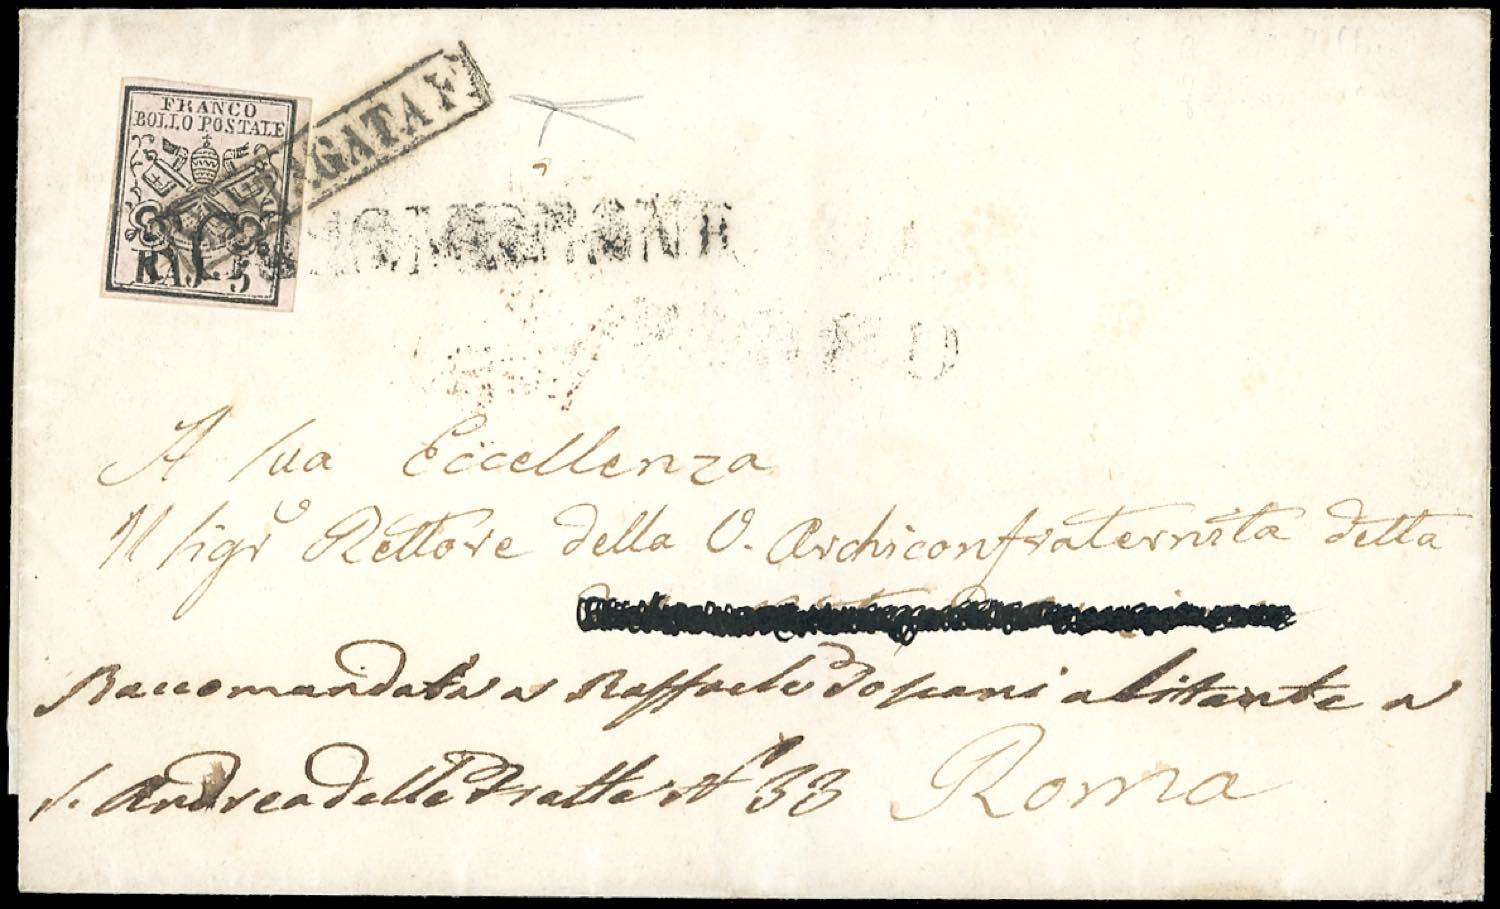 FRANCO
BOLLO POSTALE
BAJ 5
AGATA F
A sua Eccellenza
Il Sigr Rettore della V. Archiconfraternita detta
Raccomandata a Raffaele Toscani abitante a
S. Andrea delle Fratte N° 33 Roma